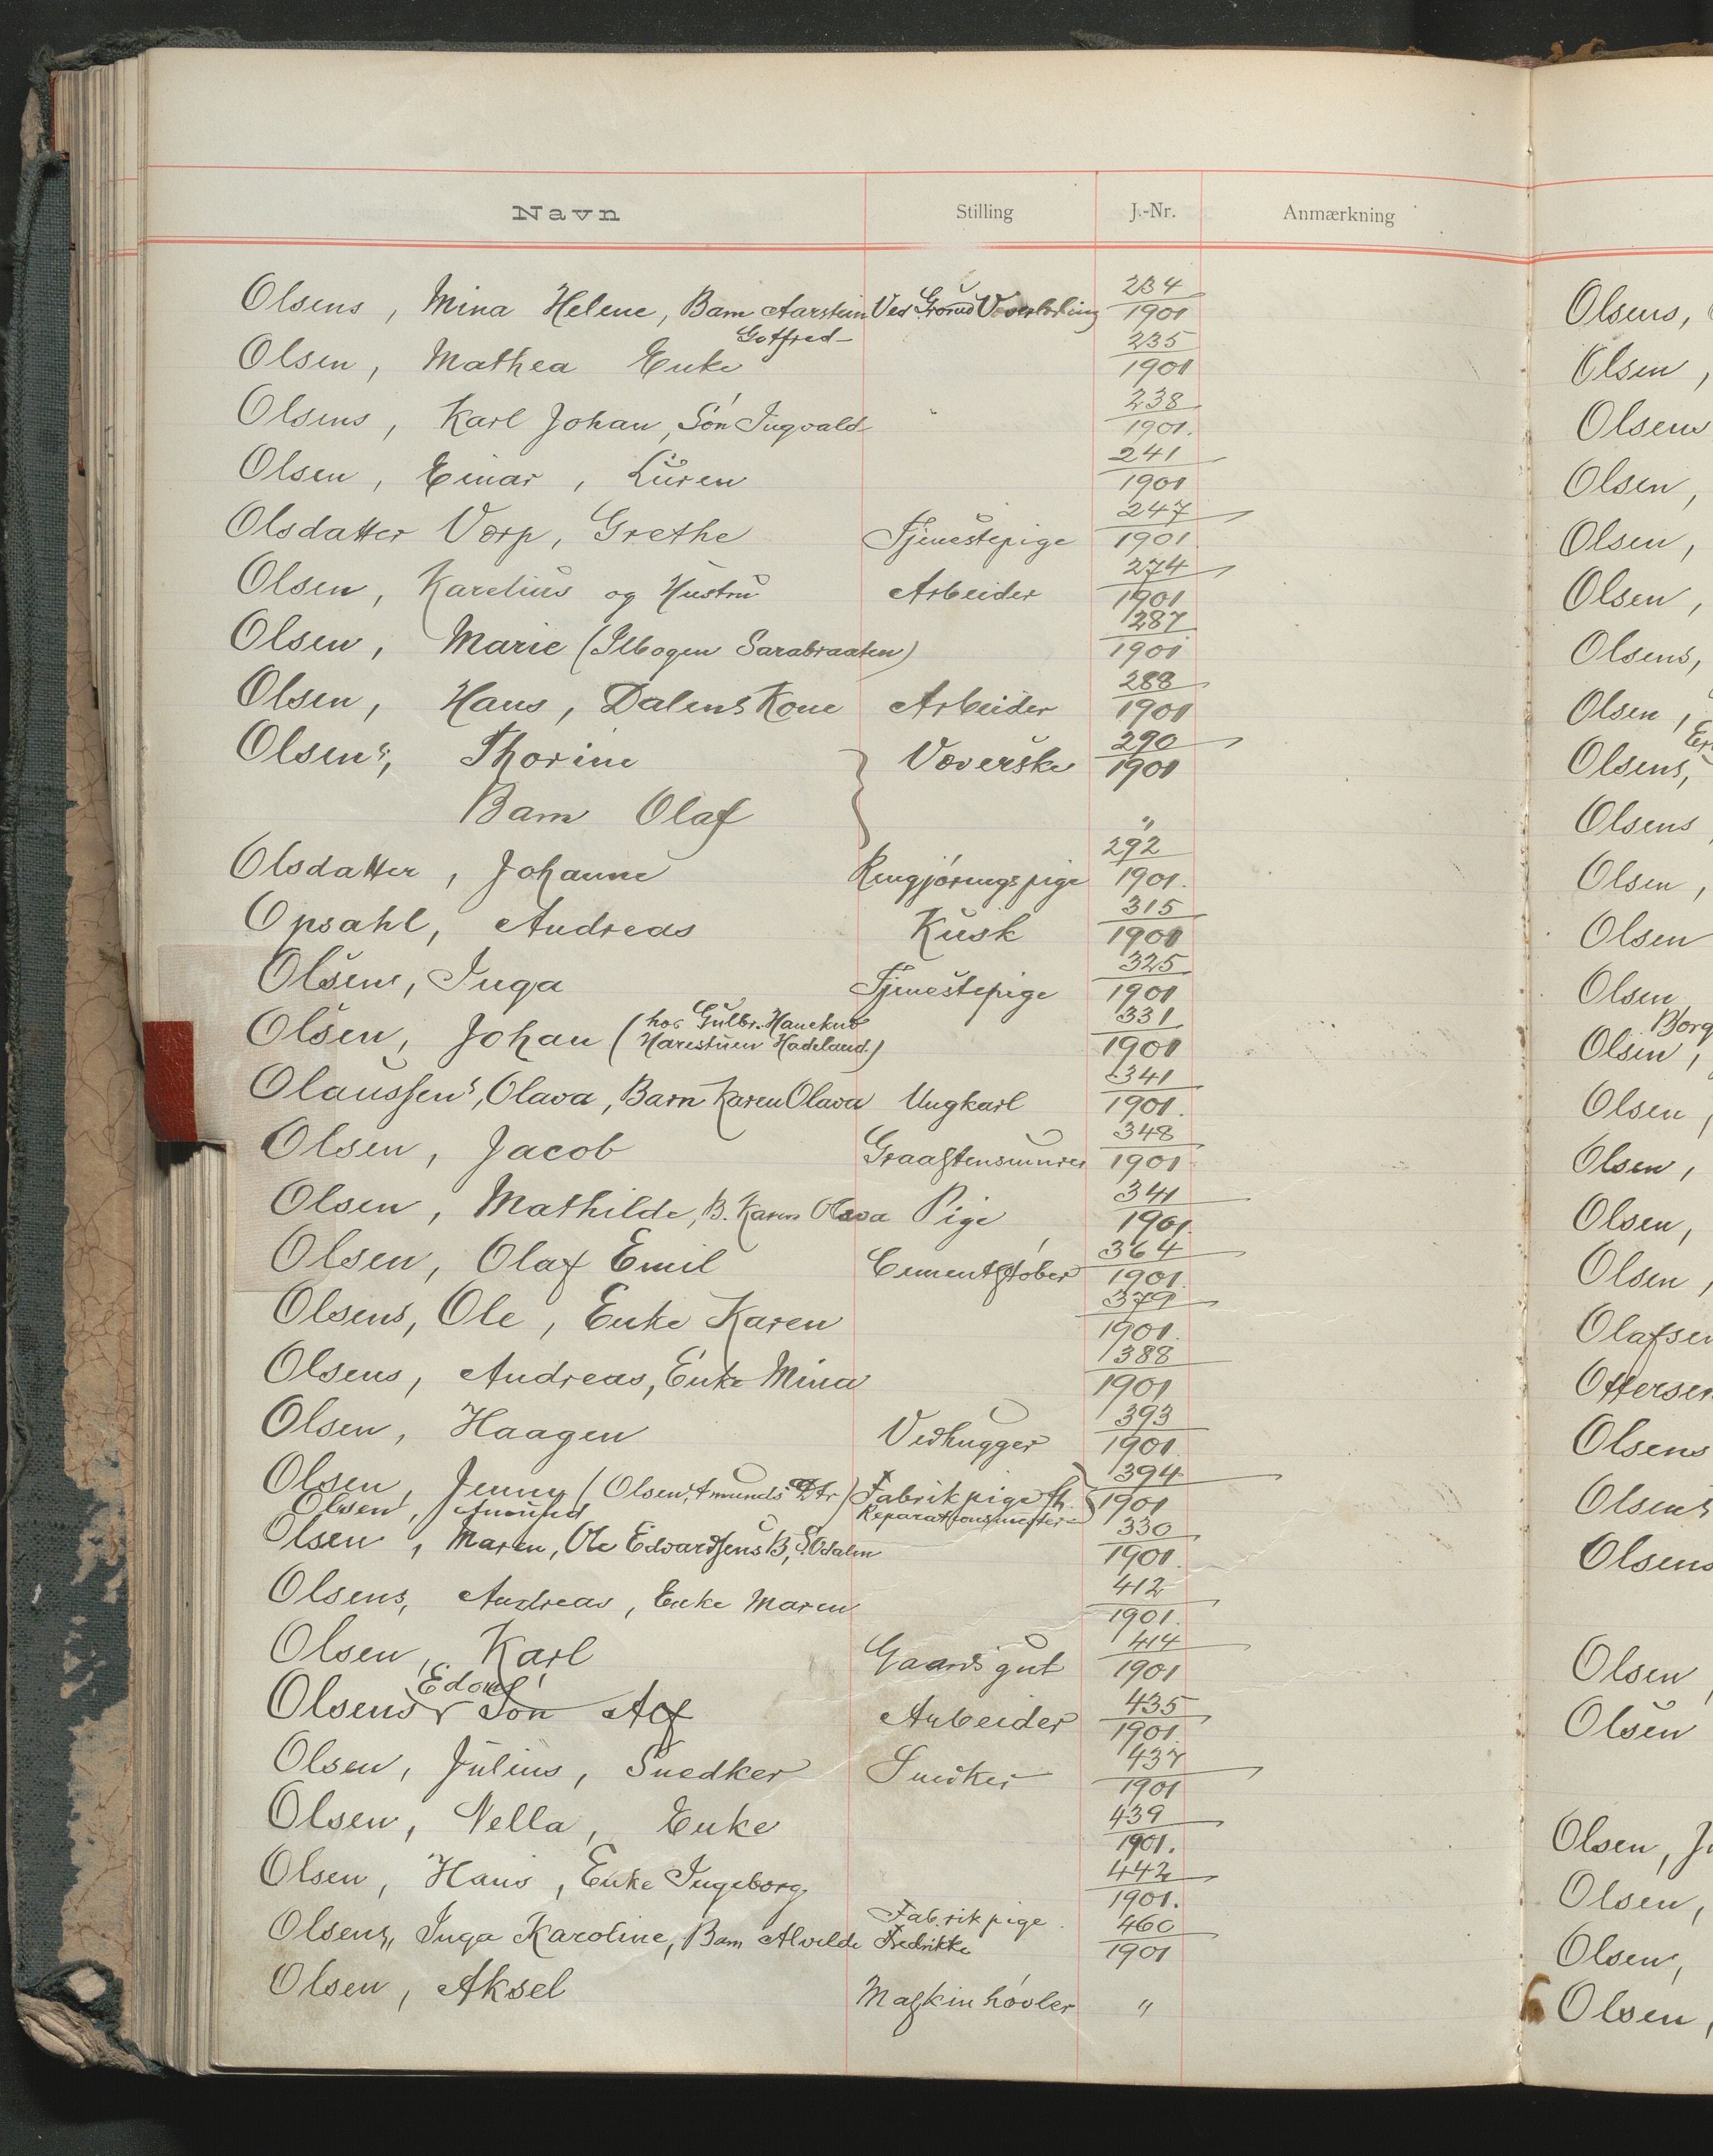 Navn Stilling J.-Nr. Anmærkning
Olsens, Mina Helene, Barn Aarstein Ved Grorud 234/1901
Gotfred
Olsen, Mathea Enke 235/1901
Olsens, Karl Johan, Søn Ingvald 238/1901.
Olsen, Einar, Luren 241/1901
Olsdatter Vorp, Grethe Tjenestepige 247/1901
Olsen, Karelius og Hustru Arbeider 274/1901
Olsen, Marie (Ilbogen Sarabraaten) 287/1901
Olsen, Hans, Dalens Kone Arbeider 288/1901
Olsens, Thorine Væverske 290/1901
Barn Olaf "
Olsdatter, Johanne Rengjøringspige 292/1901.
Opsahl, Andreas Kusk 315/1901
Olsens, Inga Tjenestepige 325/1901
Olsen, Johan (hos Gulbr. Hanekno
Harestuen Hadeland.) 331/1901
Olaussens, Olava, Barn Karen Olava Ungkarl 341/1901.
Olsen, Jacob Graastensmurer 348/1901
Olsen, Mathilde, B. Karen Olava Pige 341/1901.
Olsen, Olaf Emil Cementstøber 364/1901.
Olsens, Ole, Enke Karen 379/1901.
Olsens, Andreas, Enke Mina 388/1901
Olsen, Haagen Vedhugger 393/1901
Olsen, Jenny (Olsen, Amunds Dtr) Fabrikpige fh. 394/1901
Olsen, Amund Reparationsmester
Olsen, Maren, Ole Edvardsens B, S. Odalen 330/1901.
Olsens, Andreas, Enke Maren 412/1901.
Olsen, Karl Gaardsgut 414/1901
Edov.
Olsens Søn Alf Arbeider 435/1901.
Olsen, Julius, Snedker Snedker 437/1901
Olsen, Nella, Enke 439/1901.
Olsen, Hans, Enke Ingeborg 442/1901.
Olsens, Inga Karoline, Barn Alvilde Fredrikke Fabrikpige. 460/1901
Olsen, Aksel Maskinhøvler "
Olsens,
Olsen,
Olsens
Olsen,
Olsen,
Olsen,
Olsens,
Olsen,
Olsens,
Olsens
Olsen,
Olsen
Olsen
Borg
Olsen,
Olsen,
Olsen,
Olsen,
Olsen,
Olafsen
Ottersen
Olsens
Olsens
Olsens
Olsen
Olsen
Olsen, J
Olsen,
Olsen,
Olsen,